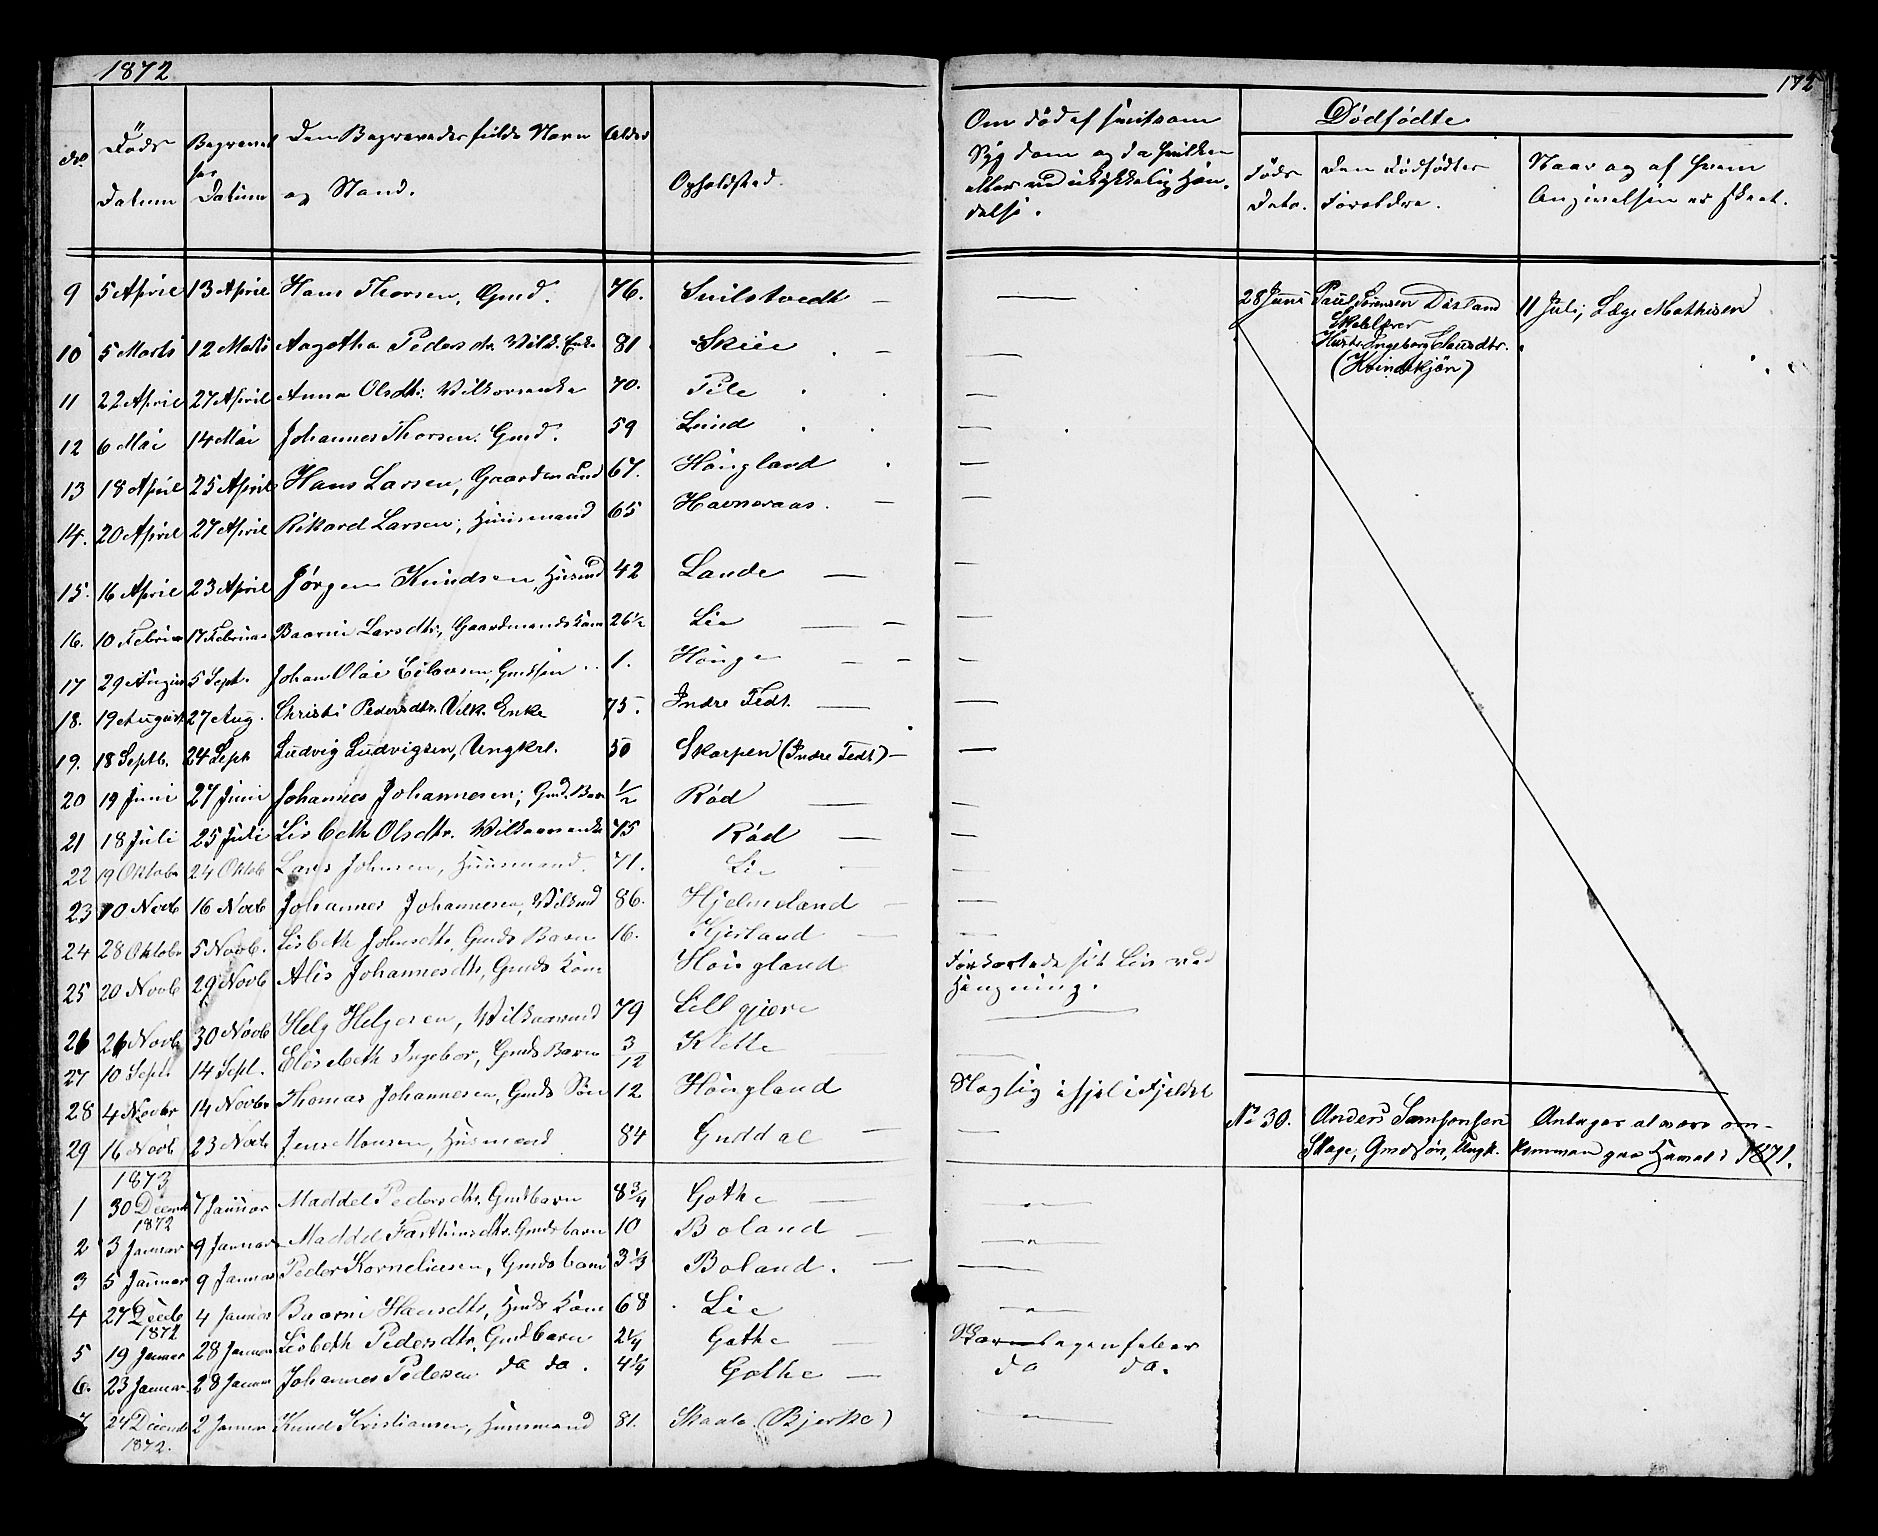 1872
172
No.
Døds Datum
Begravelses Datum
Den Begravedes fulde Navn og Stand.
Alder
Opholdsted.
Om død af smitsom Sygdom og da hvilken eller ved ulykkelig Hændelse.
Dødfødte
Føds Dato.
Den Dødfødtes Forældre.
Naar og af hvem Angivelsen er skeet.
9 5 April 13 April Hans Thorsen, Gmd. 76. Snilstvedt —
28 Juni Paul Sørensen Døsland Skolelærer Hustr. Ingeborg Clausdtr. (Kvindekjøn) 11 Juli, Læge Mathisen
10 5 Marts 12 Marts Aagotha Pedersdtr. Vilk. Enke 81 Skiee —
11 22 April 27 April Anna Olsdtr. Vilkorsenke 70. Pile —
12 6 Mai 14 Mai Johannes Thorsen. Gmd. 59 Lund —
13 18 April 25 April Hans Larsen, Gaardmand 67. Høugland —
14. 20 April 27 April Rikard Larsen, Huusmand 65 Havneraas. —
15. 16 April 23 April Jørgen Knudsen, Husmd 42 Lande —
16. 10 Februar 17 Februar Baarni Larsdtr, Gaardmandskone 26½ Lie —
17 29 August 5 Sept. Johan Olai Eilevsen, Gmdssøn 1. Høuge —
18. 19 August 27 Aug. Christi Pedersdtr. Vilk. Enke 75. Indre Tedt. —
19. 18 Septb. 24 Sept Ludvig Ludvigsen, Ungkrl. 50 Skorpen (Indre Tedt) —
20 19 Juni 27 Juni Johannes Johannesen; Gmd. Barn ½ Rød —
21 18 Juli 25 Juli Lisbeth Olsdtr. Vilkaarsenke 75 Rød —
22 19 Oktobr 24 Oktob Lars Johnsen, Huusmand. 71. Lie —
23 10 Novb 16 Novb Johannes Johannesen, Vilkmd 86. Hjelmeland —
24 28 Oktobr 5 Novb. Lisbeth Johnsdtr, Gmds Barn 16. Kjerland —
25 20 Novb 29 Novb Alis Johannesdtr, Gmds Kone Høugland Forkortede sit Liv ved Hængning.
26 26 Novb 30 Novb Helg Helgesen, Vilkaarsmd 79 Lillgjære —
27 10 Sept. 14 Sept. Elisebeth Ingebor, Gmds Barn 3/12 Klette —
28 4 Novbr 14 Novbr Thomas Johannesen, Gmds Søn 12 Høugland Slog sig ihjel i Fjeldet
29 16 Novb 23 Novb Jens Monsen, Husmand 84 Guddal —
No 30. Anders Samsonsen Skage, Gmdssøn, Ungk. Antages at være omkommen paa Havet i 1871.
1873
1 30 Decmb 1872 7 Januar Maddel Pedersdtr. Gmdbarn 8¾ Gothe — " —
2 3 Januar 9 Januar Maddel Gmdsbarn 10 Boland — " —
3 5 Januar 9 Januar Peder Korneliusen, Gmdsbarn 3⅓ Boland. —
4 27 Decb 1872 4 Januar Baarni Hansdtr, Husmds Kone 68 Lie — " —
5 19 Januar 28 Januar Lisbeth Pedersdtr. Gmdbarn 2¼ Gothe Skarlagensfeber
6. 23 Januar 28 Januar Johannes Pedersen do do. 4¼ Gothe — do do.
7 24 Decmb 1872. 2 Januar Knud Kristiansen, Huusmand 81. Skaalo (Bjerke) — " —